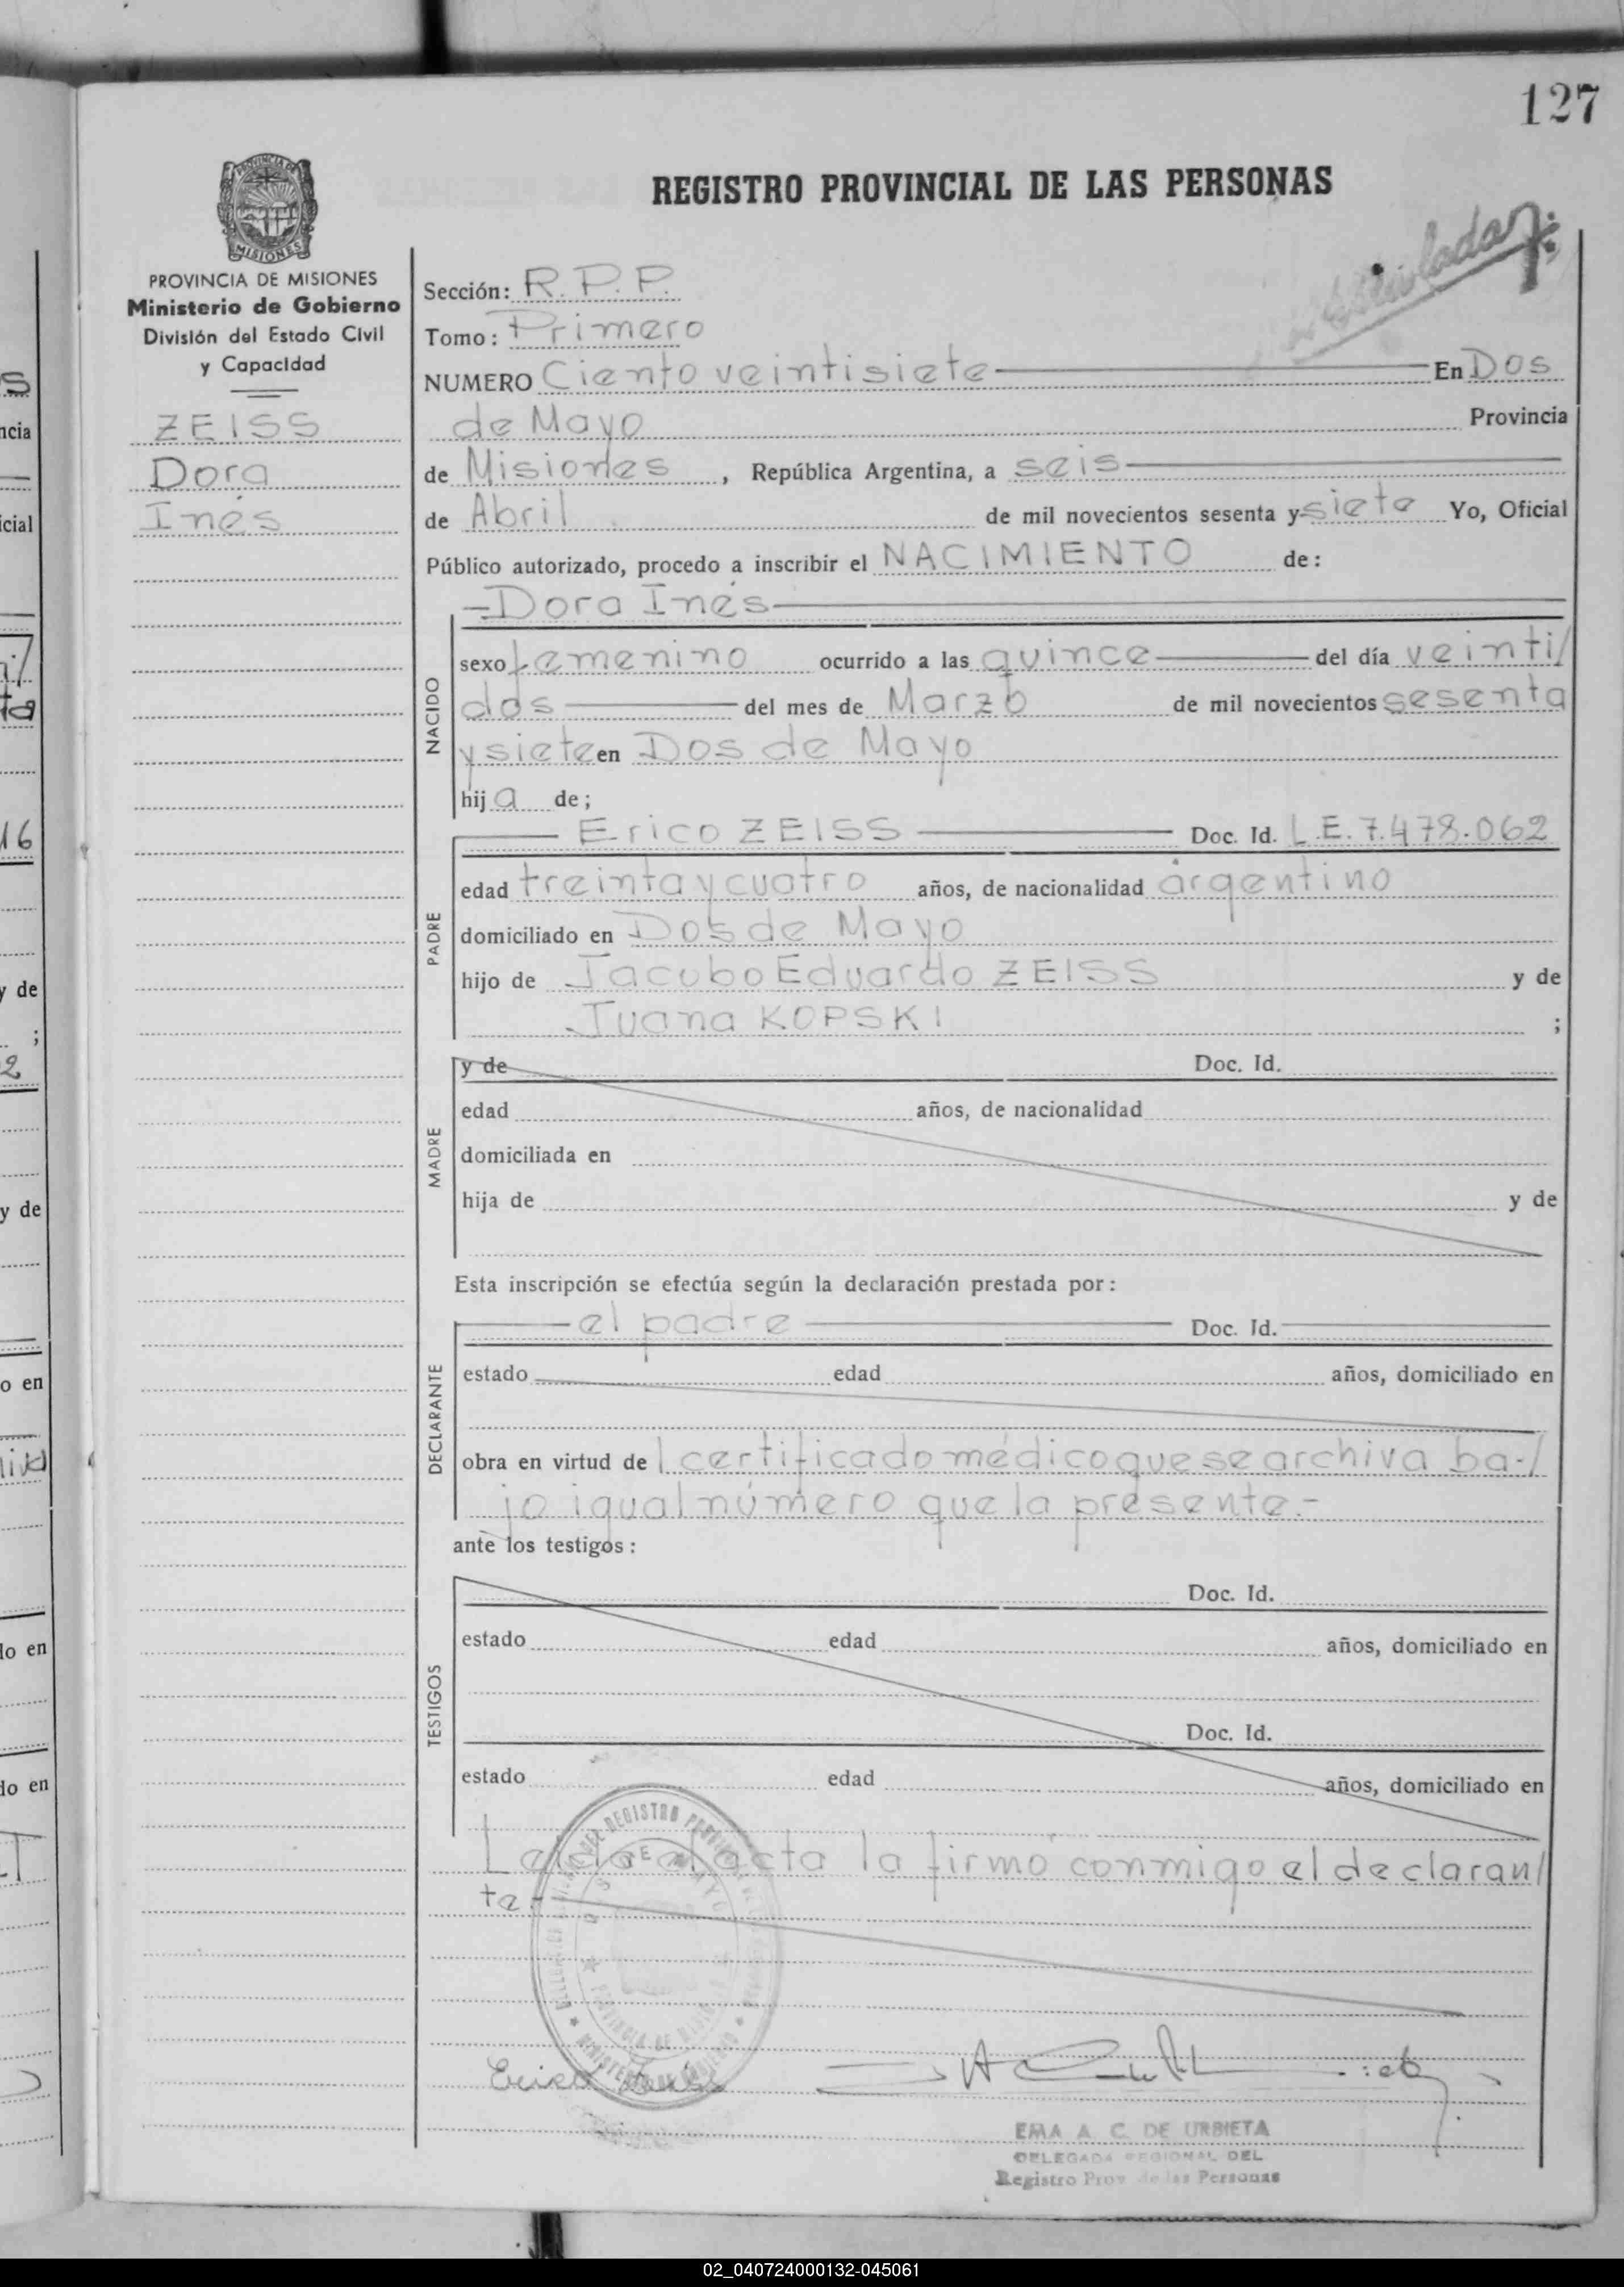 127
REGISTRO PROVINCIAL DE LAS PERSONAS
PROVINCIA DE
MISIONES
PROVINCIA DE MISIONES
Ministerio de Gobierno
División del Estado Civil
y Capacidad
ZEISS
Dora
Inés
Sección: R.P.P.
Tomo: Primero
NUMERO Ciento veintisiete En Dos
de Mayo Provincia
de Misiones, República Argentina, a seis
de Abril de mil novecientos sesenta y siete Yo, Oficial
Público autorizado, procedo a inscribir el NACIMIENTO de:
Dora Inés
NACIDO
sexo femenino ocurrido a las quince del día veinti/
dós del mes de Marzo de mil novecientos sesenta
y siete en Dos de Mayo
hija de;
PADRE
Erico ZEISS Doc. Id. L.E.7.478.062
edad treinta y cuatro años, de nacionalidad argentino
domiciliado en Dos de Mayo
hijo de Jacobo Eduardo ZEISS y de
Juana KOPSKI ;
MADRE
y de Doc. Id.
edad años, de nacionalidad
domiciliada en
hija de y de
Esta inscripción se efectúa según la declaración prestada por:
DECLARANTE
el padre Doc. Id.
estado edad años, domiciliado en
obra en virtud del certificado médico que se archiva ba-/
jo igual número que la presente.-
ante los testigos:
TESTIGOS
Doc. Id.
estado edad años, domiciliado en
Doc. Id.
estado edad años, domiciliado en
Leída el acta la firmó conmigo el declaran/
te.-
Erico Zeiss
EMA A. C. DE URBIETA
DELEGADA REGIONAL DEL
Registro Prov de las Personas
02_040724000132-045061